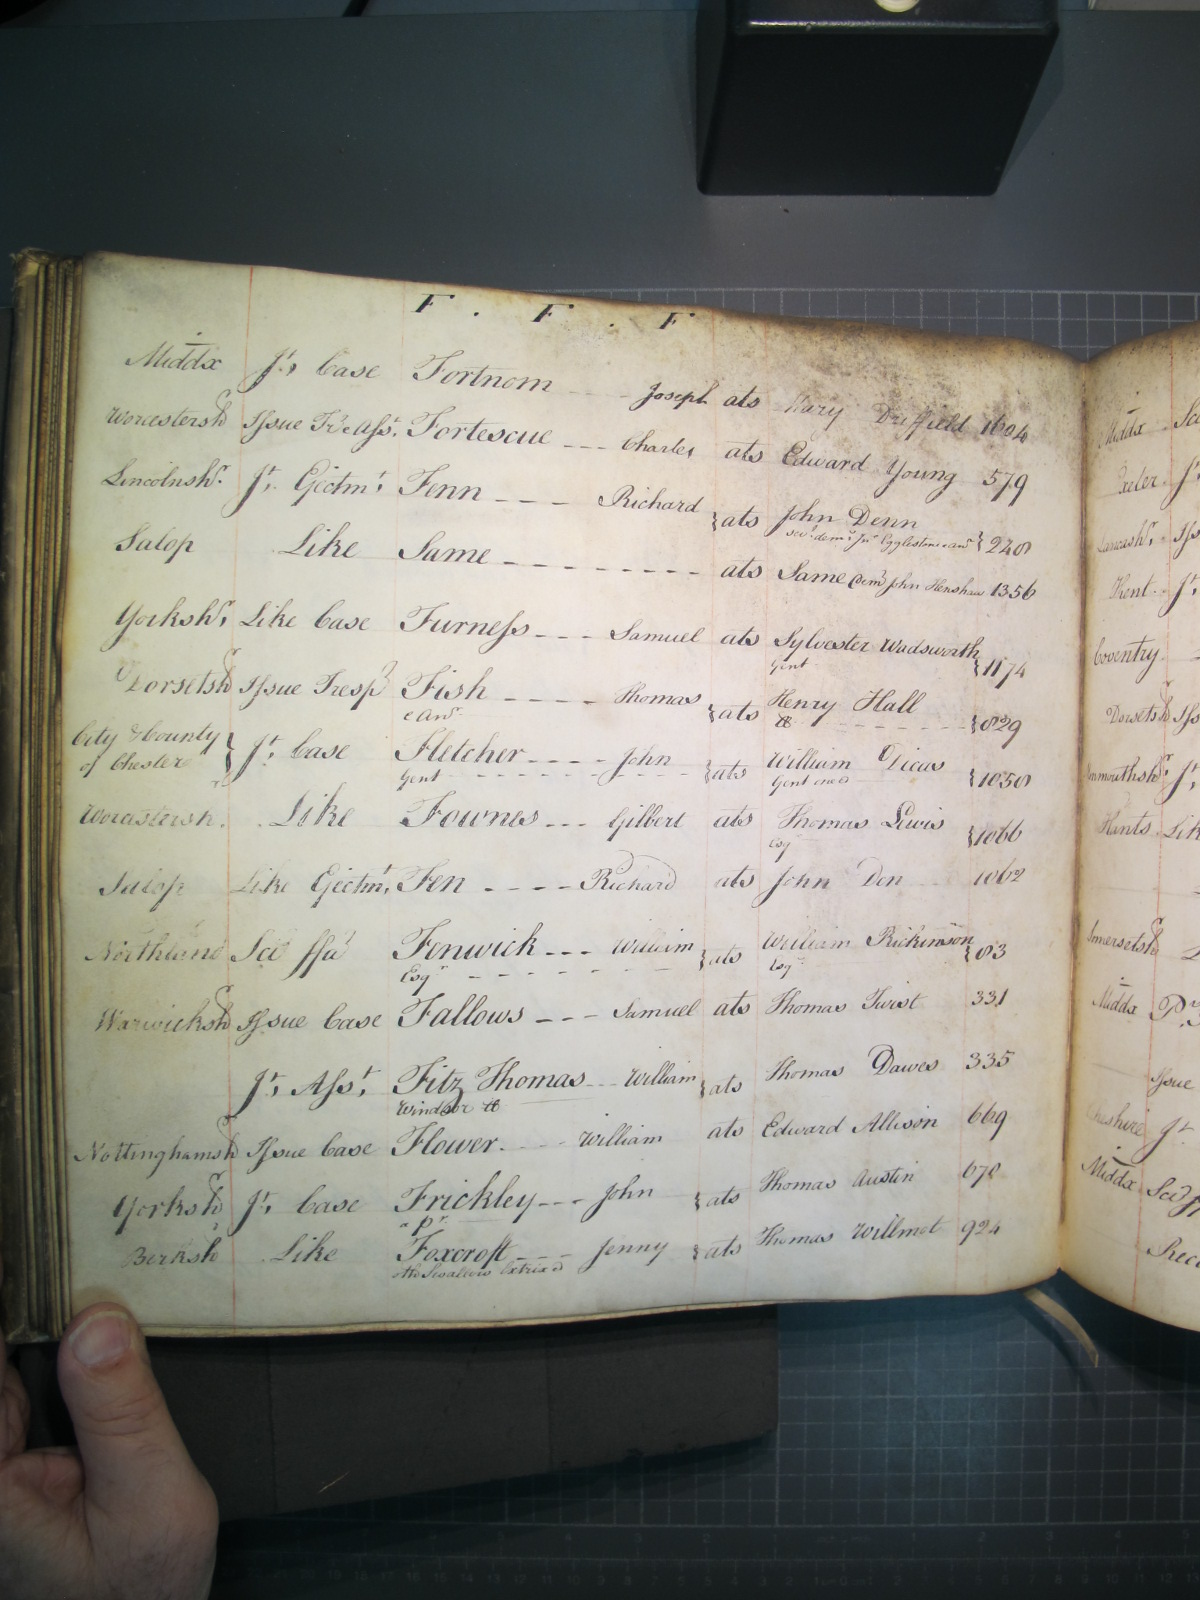 F . F . F
Middx Jt. Case Fortnom --- Joseph ats Mary Driffield 1604
Worcestersh Issue Tr & Asst. Fortescue --- Charles ats Edward Young 579
Lincolnshr. Jt. Ejectmt Fenn --- Richard } ats John Denn
sevl demr Jno Eggleston & anr } 248
Salop Like Same --------- ats Same Demr John Henshaw 1356
Yorkshr, Like Case Furness --- Samuel ats Sylvester Wadsworth
Gent } 1174
Dorsetsh Issue Tresp Fish ---- Thomas } ats Henry Hall
& anr } 829
City & County
of Chester } Jt. Case Fletcher ---- John } ats William Dicas
Gent Gent one &c } 1050
Worcestersh. Like Fownes --- Gilbert ats Thomas Lewis
Esqr } 1066
Salop Like Ejectmt, Fen ---- Richard ats John Den 1062
Northland Sci ffa Fenwick --- William } ats William Rickinson
Esqr Esqr } 83
Warwicksh Issue Case Fallows --- Samuel ats Thomas Twist 331
Jt, Asst, Fitz Thomas --- William } ats Thomas Dawes 335
Windsor
Nottinghamsh Issue Case Flower --- William ats Edward Allison 669
Yorksh Jt, Case Frickley --- John } ats Thomas Austin 670
Berksh Like Foxcroft --- Jenny } ats Thomas Willmot 924
Middx
Exeter
Lancashr,
Kent
Coventry
Dorsetsh
Hants Lik
Middx
Issue
Cheshire Jt
Middx